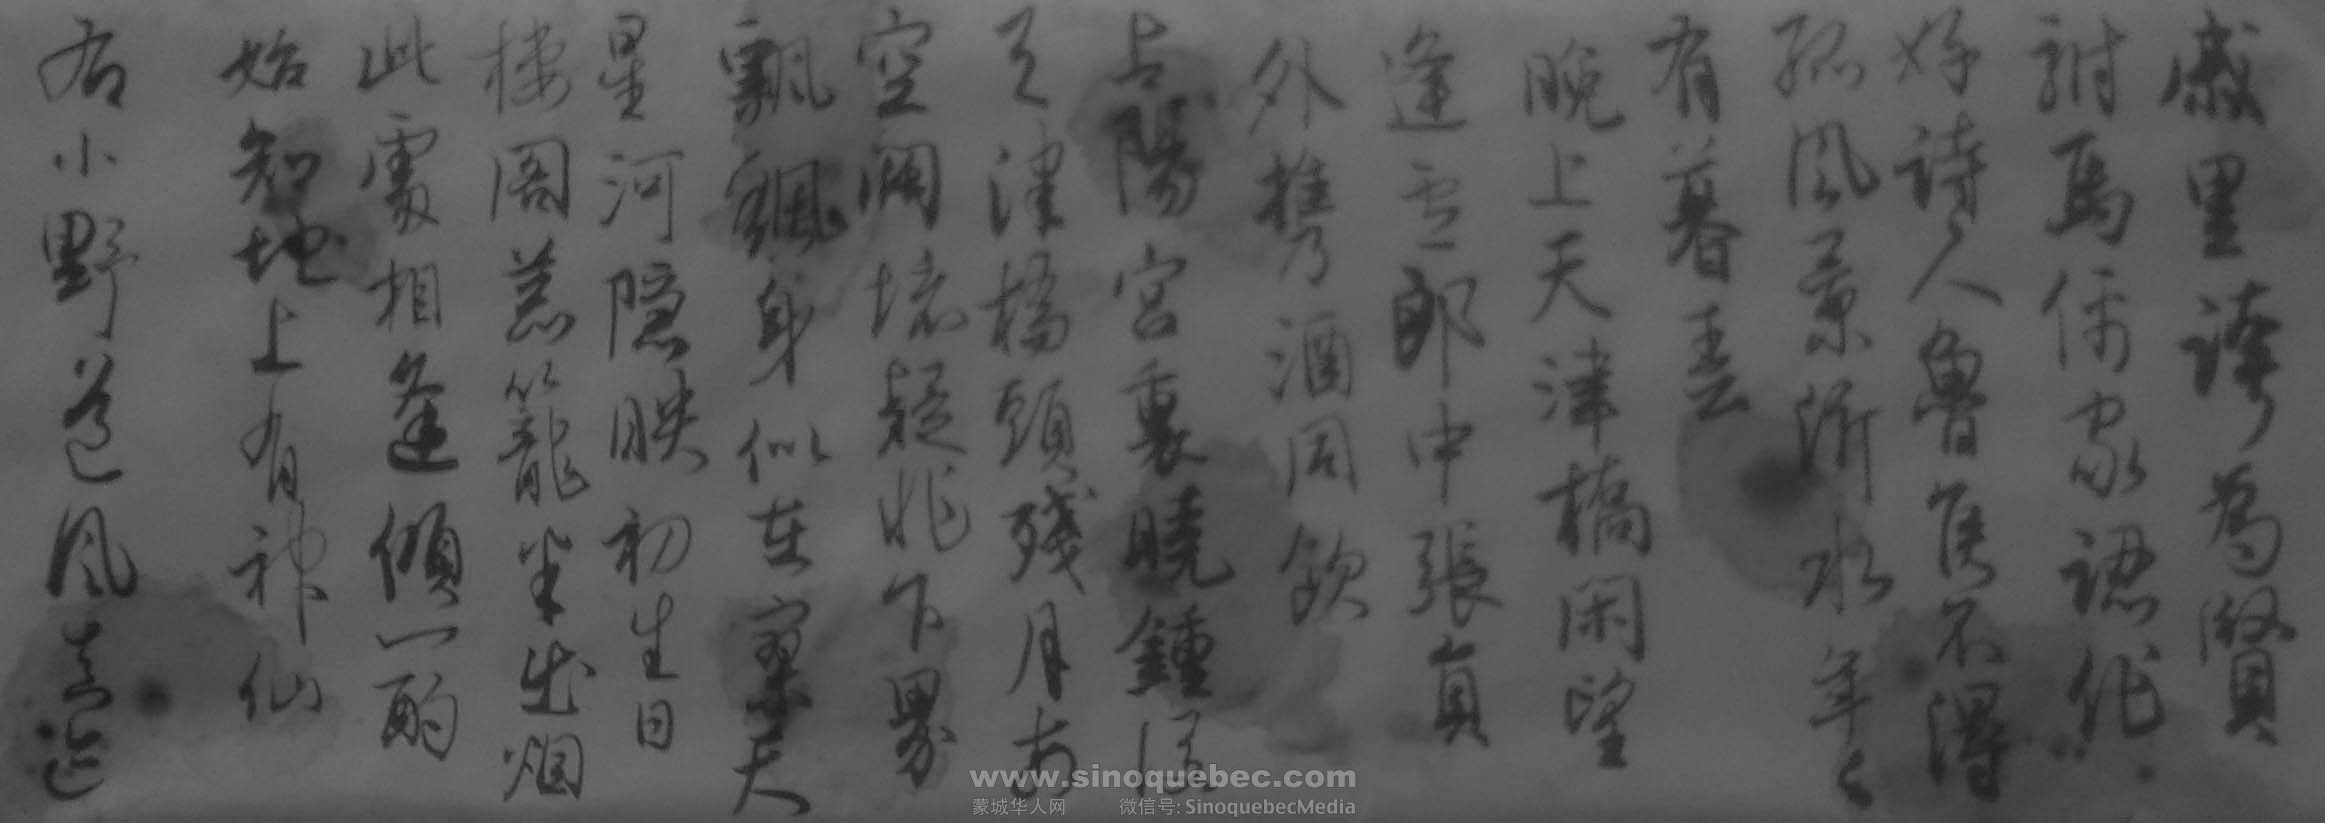 戚里誇為賢
駙馬儒家認作
好詩人魯侯不得
孤風景沂水年々
有暮春
晚上天津橋閑望
逢盧郎中張員
外携酒同飲
上陽宮裏曉鍾後
天津橋頭殘月前
空闊境疑非下界
飄飄身似在寥天
星河隱映初生日
樓閣蔥籠半出烟
此處相逢傾一酌
始知地上有神仙
右小野道風真迹
www.sinoquebec.com
蒙城华人网 微信号: SinoquebecMedia